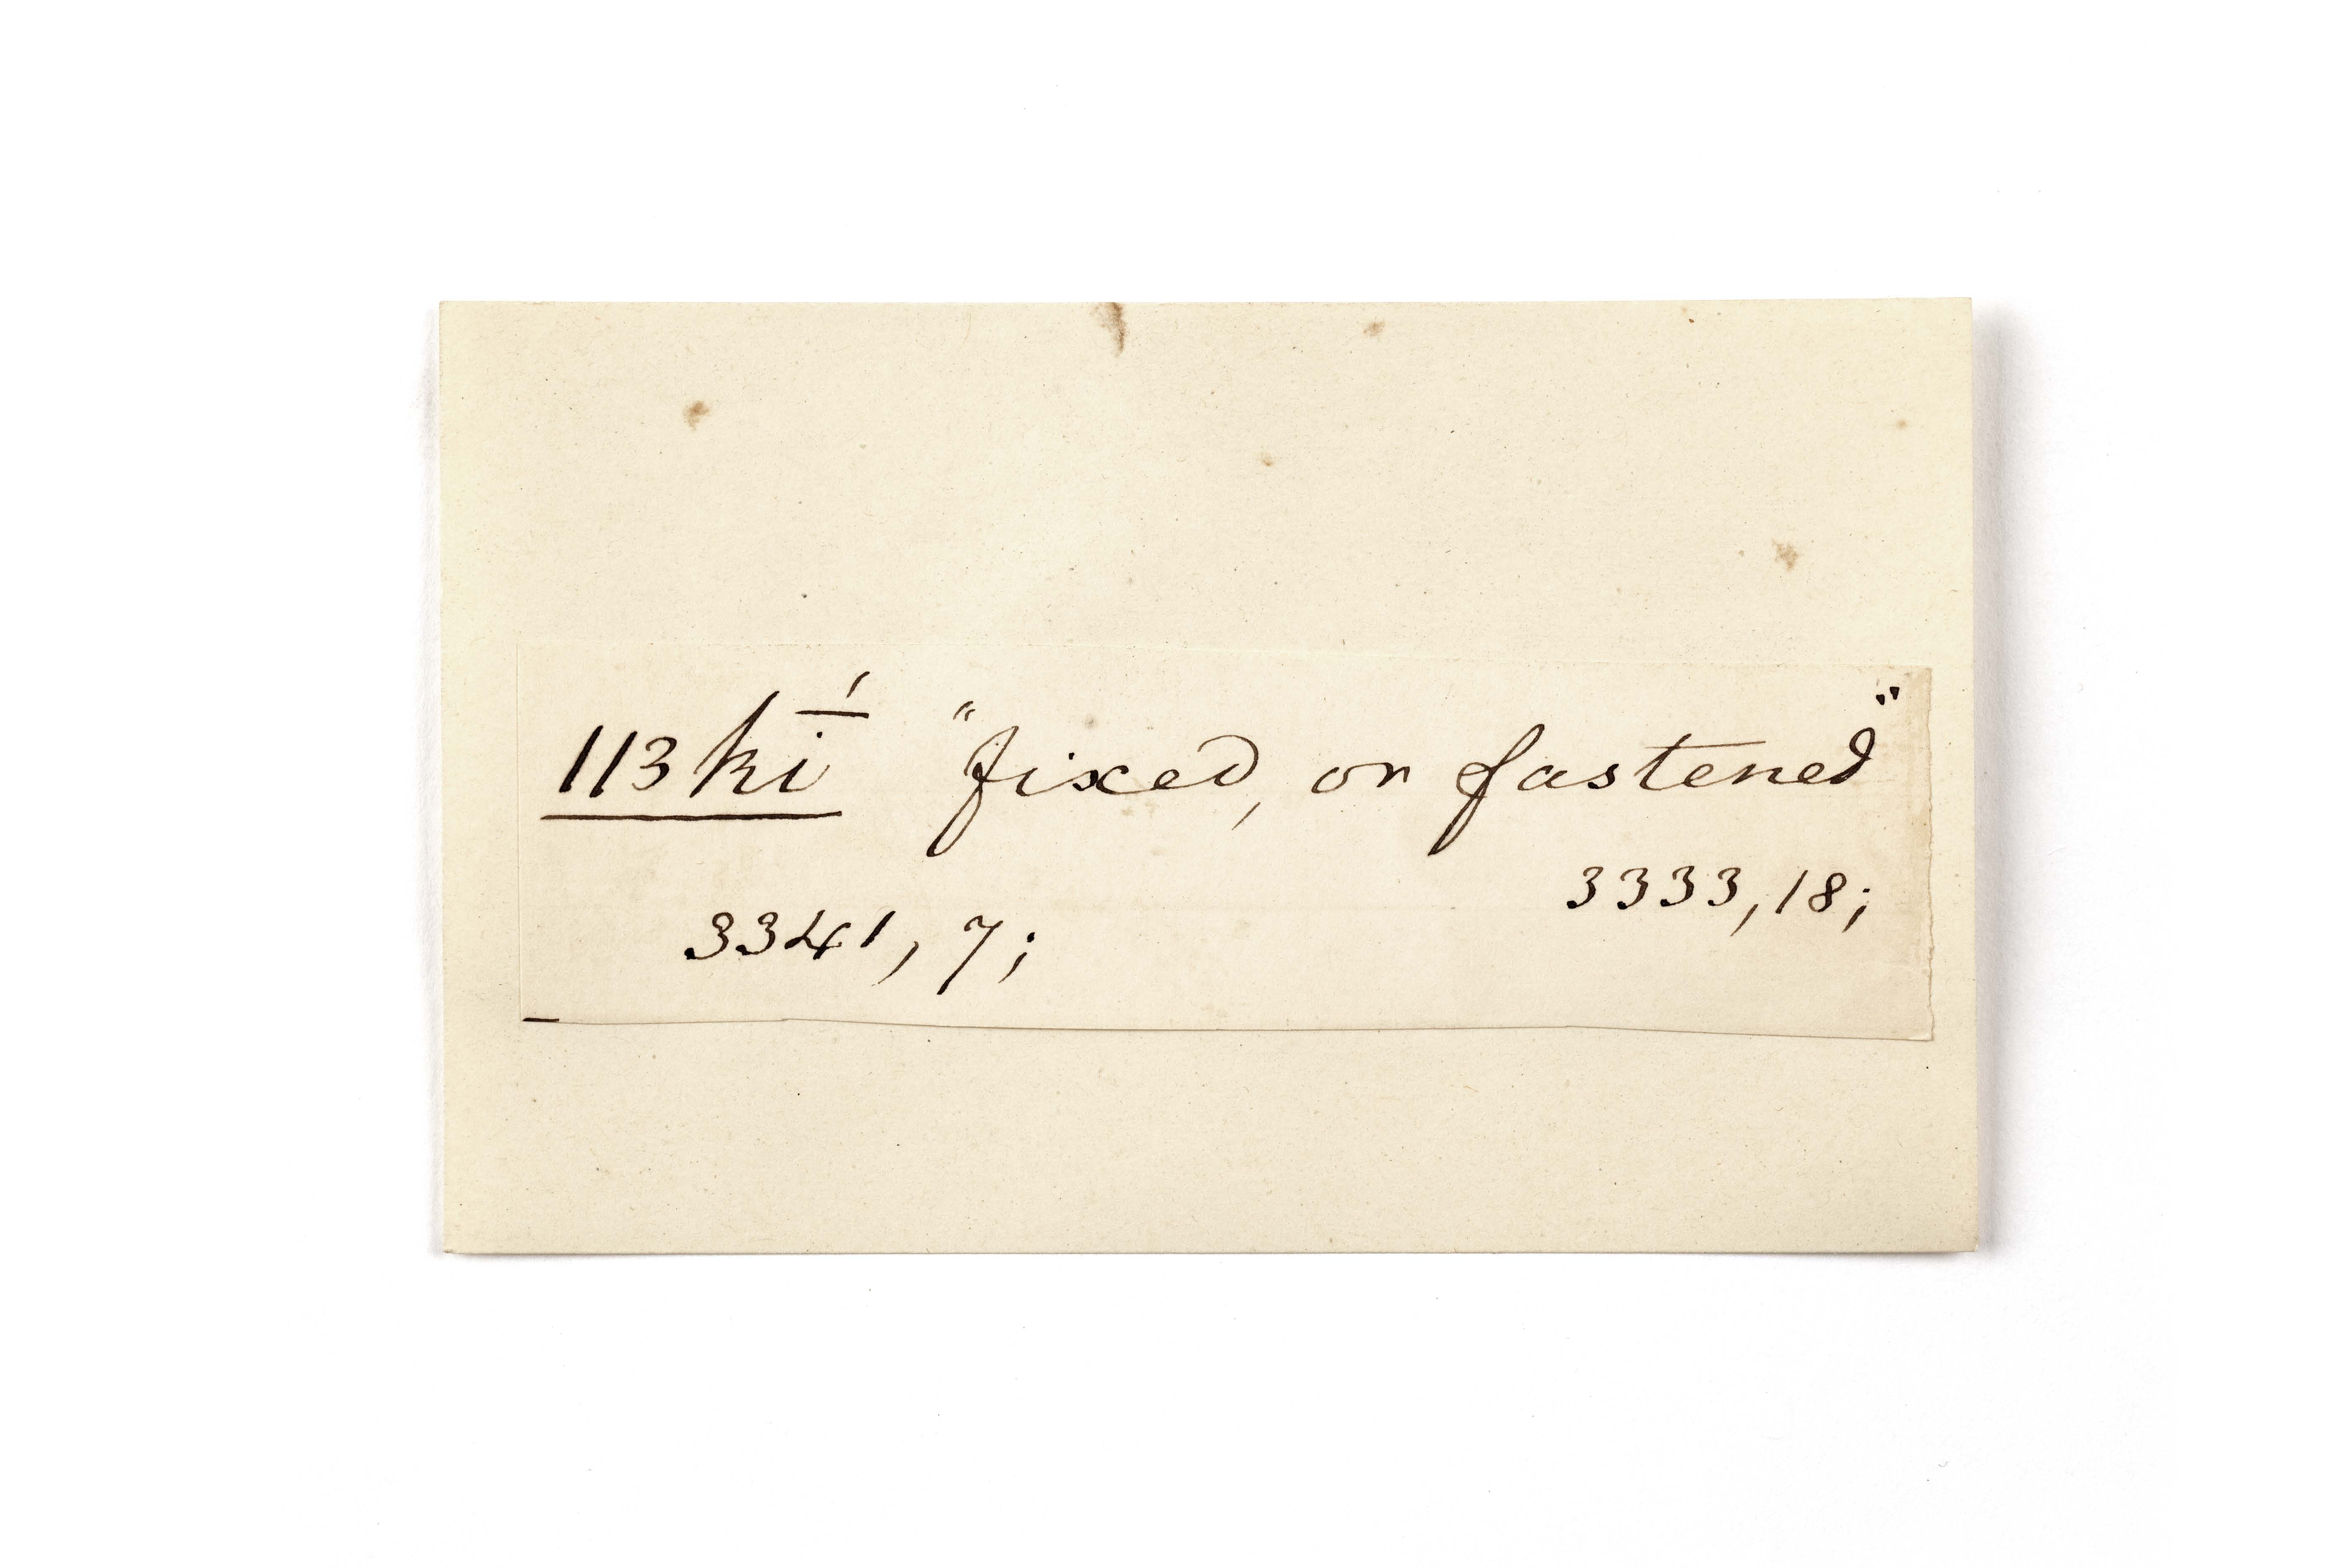 ǁ3kī́ "fixed, or fastened"
3333,18;
3341, 7;